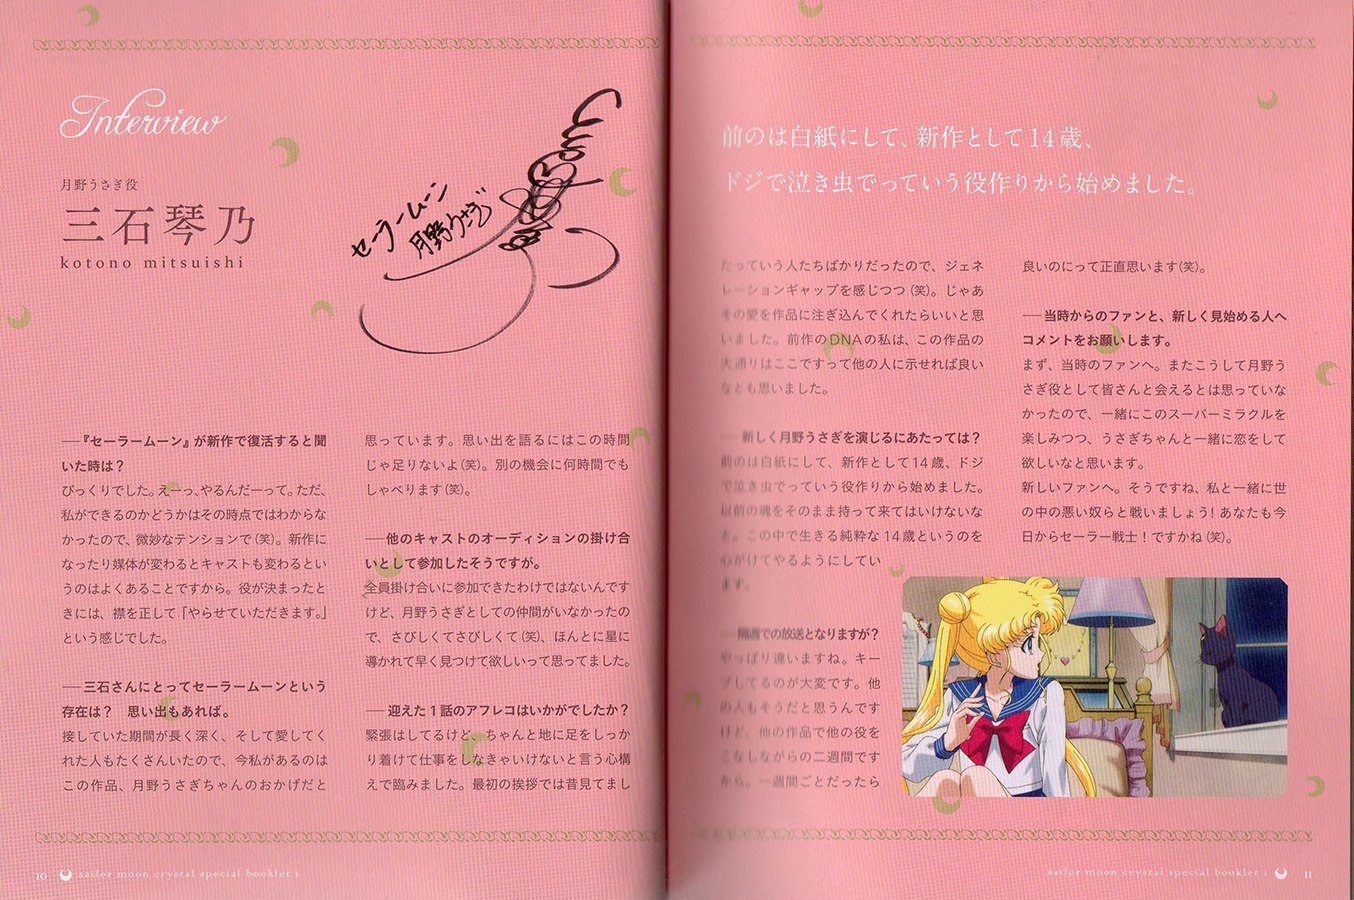 Interview
月野うさぎ役
三石琴乃
kotono mitsuishi
セーラームーン
月野うさぎ
――『セーラームーン』が新作で復活すると聞
いた時は？
びっくりでした。えーっ、やるんだーって。ただ、
私ができるのかどうかはその時点ではわからな
かったので、微妙なテンションで（笑）。新作に
なったり媒体が変わるとキャストも変わるとい
うのはよくあることですから。役が決まったと
きには、襟を正して「やらせていただきます。」
という感じでした。
――三石さんにとってセーラームーンという
存在は？　思い出もあれば。
接していた期間が長く深く、そして愛してく
れた人もたくさんいたので、今私があるのは
この作品、月野うさぎちゃんのおかげだと
思っています。思い出を語るにはこの時間
じゃ足りないよ（笑）。別の機会に何時間でも
しゃべります（笑）。
――他のキャストのオーディションの掛け合
いとして参加したそうですが。
全員掛け合いに参加できたわけではないんです
けど、月野うさぎとしての仲間がいなかったの
で、さびしくてさびしくて（笑）、ほんとに星に
導かれて早く見つけて欲しいって思ってました。
――迎えた１話のアフレコはいかがでしたか？
緊張はしてるけど、ちゃんと地に足をしっか
り着けて仕事をしなきゃいけないと言う心構
えで臨みました。最初の挨拶では昔見てまし
10 sailor moon crystal special booklet 1
前のは白紙にして、新作として14歳、
ドジで泣き虫でっていう役作りから始めました。
たっていう人たちばかりだったので、ジェネ
レーションギャップを感じつつ（笑）。じゃあ
その愛を作品に注ぎ込んでくれたらいいと思
いました。前作のDNAの私は、この作品の
大通りはここですって他の人に示せれば良い
なとも思いました。
――新しく月野うさぎを演じるにあたっては？
前のは白紙にして、新作として14歳、ドジ
で泣き虫でっていう役作りから始めました。
以前の魂をそのまま持って来てはいけないな
と。この中で生きる純粋な14歳というのを
心がけてやるようにしてい
ます。
――隔週での放送となりますが？
やっぱり違いますね。キー
プしてるのが大変です。他
の人もそうだと思うんです
けど。他の作品で他の役を
こなしながらの二週間です
から。一週間ごとだったら
良いのにって正直思います（笑）。
――当時からのファンと、新しく見始める人へ
コメントをお願いします。
まず、当時のファンへ。またこうして月野う
さぎ役として皆さんと会えるとは思っていな
かったので、一緒にこのスーパーミラクルを
楽しみつつ、うさぎちゃんと一緒に恋をして
欲しいなと思います。
新しいファンへ。そうですね、私と一緒に世
の中の悪い奴らと戦いましょう！あなたも今
日からセーラー戦士！ですかね（笑）。
sailor moon crystal special booklet 1 11